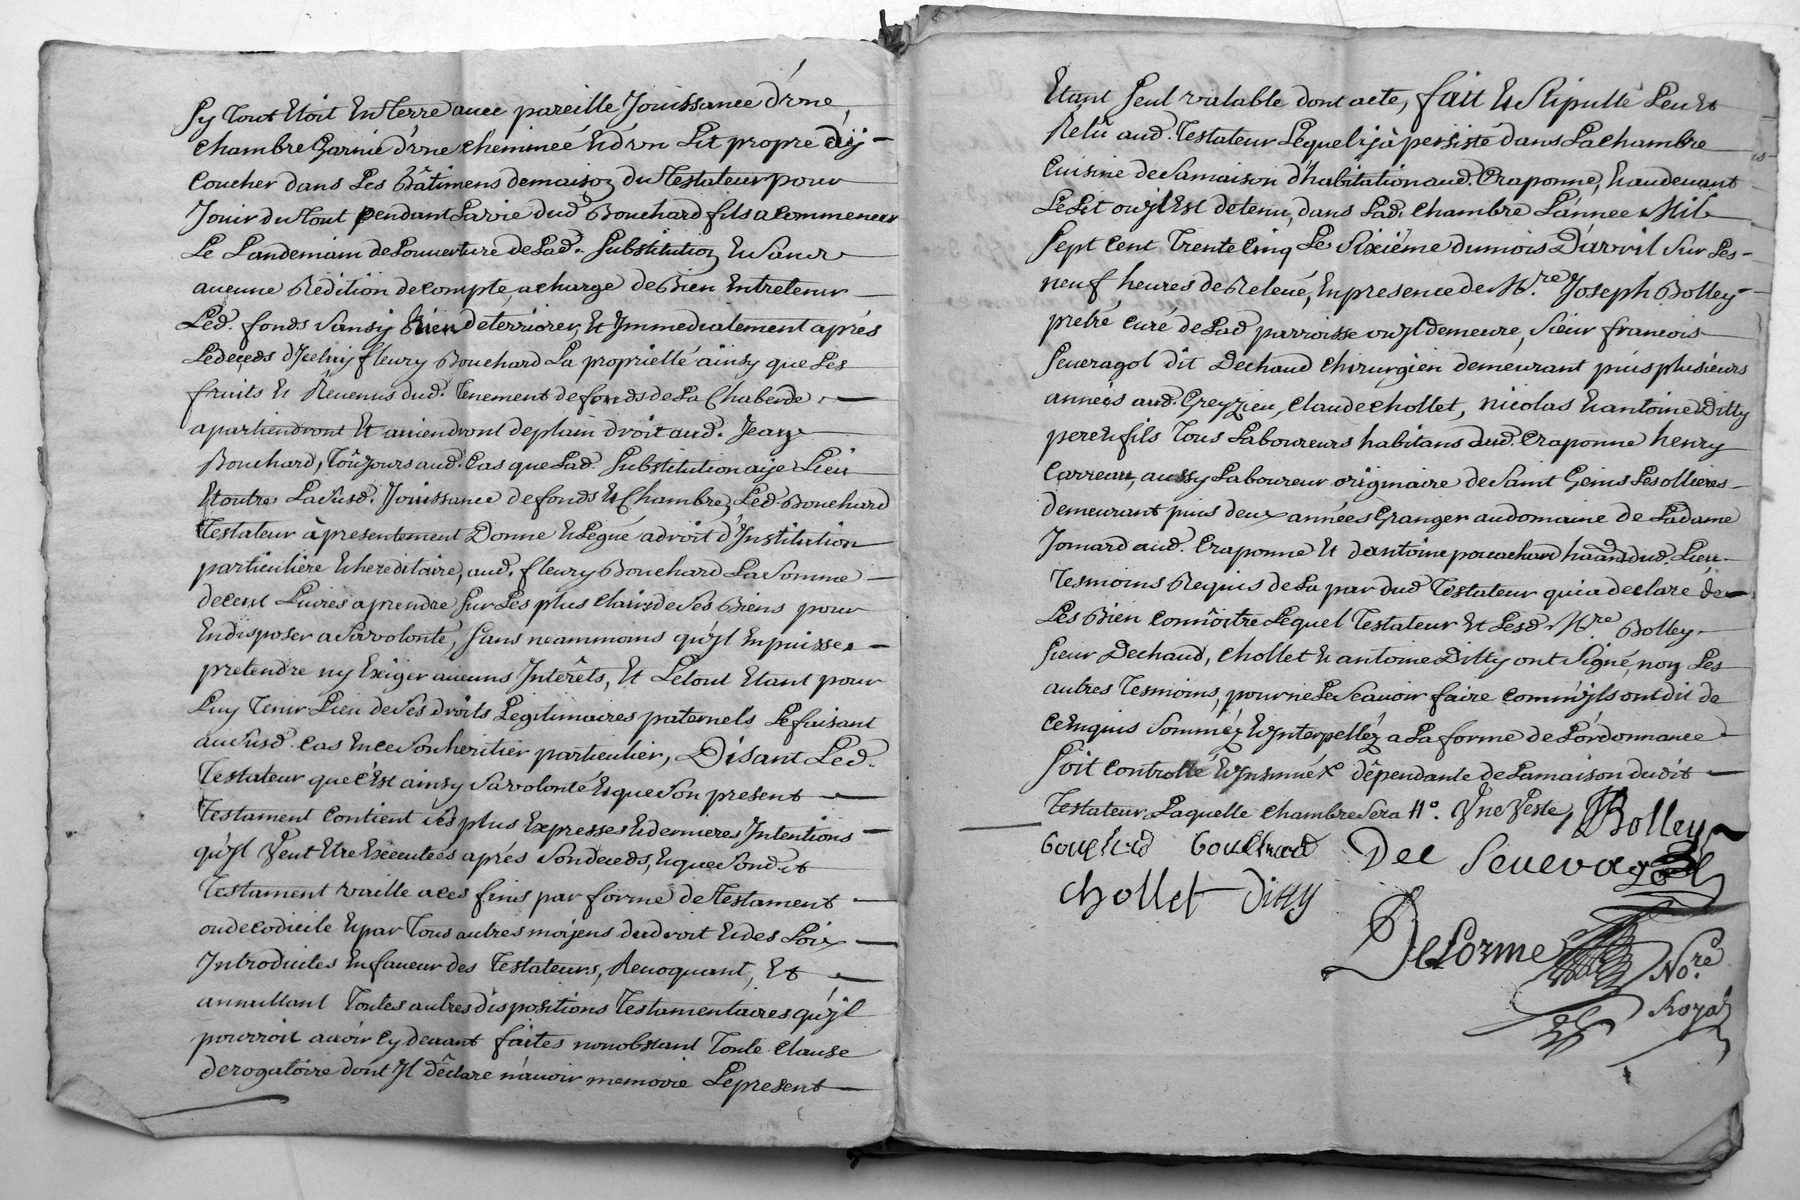 sy tout etoit en terre avec pareille Jouissance d'vne
chambre Garnie d'vne cheminée et d'vn Lit propre d'ÿ
coucher dans les Bâtimens de maison du Testateur pour
Jouir du tout pendant la vie dud. Bouchard fils a commencer
Le Landemain de Louuerture de lad. substitution et sans
aucune Redition de compte, a charge de Bien Entretenir
Led. fonds sans ÿ Rien deterriorer, et Immediatement aprés
Le deceds d'Jceluy fleury Bouchard La proprietté ainsy que Les
fruits et Revenus dud. Tenement de fonds de La Chaberde
apartiendront et auiendront de plain droit aud. Jean
Bouchard, Toûjours aud. Cas que Lad. substitution aije Lieu
et outre La susd. Jouissance de fonds et Chambre, Led. Bouchard
Testateur à presentement Donne et Legue a droit d'Institution
particuliere et hereditaire, aud. fleury Bouchard La Somme
de cent Liures a prendre sur Les plus clairs de ses Biens pour
En disposer a sa volonté, sans neammoins qu'jl En puisse
pretendre ny Exiger aucuns Interêts, Et Le tout Etant pour
Luy Tenir Lieu de ses droits Legitimaires paternels Le faisant
au susd. cas en ce son heritier particulier, Disant Led.
Testateur que c'est ainsy sa volonté et que son present
Testament contient ses plus Expresses et dernieres Intentions
qu'jl Veut Etre Executées aprés son deceds, et que sondit
Testament vaille a ces fins par forme de Testament
ou de codicile et par Tous autres moÿens du droit et des Loix
Introduites En faueur des Testateurs, Reuoquant, Et
annullant Toutes autres dispositions Testamentaires qu'jl
pourroit auoir cy deuant faites nonobstant Toute clause
derogatoire dont Jl déclare n'auoir memoire Le present
Etant seul valable dont acte, fait et stipullé Leu et
Relû aud. Testateur Lequel ÿ à persisté dans La chambre
cuisine de sa maison d'habitation aud. Craponne, et au deuant
Le Lit ou jl Est detenu, dans Lad. chambre L'année Mil
sept cent Trente cinq Le sixiéme du mois D'avvril sur Les
neuf heures de Releué, En presence de Mre. Joseph Bolley
pretre curé de Lad. parroisse ou jl demeure, sieur francois
seueragol dit Dechaud chirurgien demeurant puis plusieurs
années aud. Greyzieu, claude chollet, nicolas et antoine Ditty
pere et fils Tous Laboureurs habitans dud. Craponne henry
Carreau, aussy Laboureur originaire de Saint Genis Les ollieres
demeurant puis deux années Granger au domaine de La dame
Jomard aud. Craponne et d'antoine dud. Lieu
Tesmoins Requis de La par dud. Testateur qui a declaré de
Les Bien connôitre Lequel Testateur et Lesd. Mre. Bolley
sieur Dechaud, chollet et antoine Ditty ont signé, non Les
autres Tesmoins, pour ne Le scauoir faire comm'jls ont dit de
ce Enquis sommez et Interpellez a La forme de L'ordonnance
soit controllé et Insinué dépendante de La maison dudit
Testateur Laquelle chambre sera Bolley
bouchard Dec Severagol
Chollet Ditty
Delorme Nore.
Royal